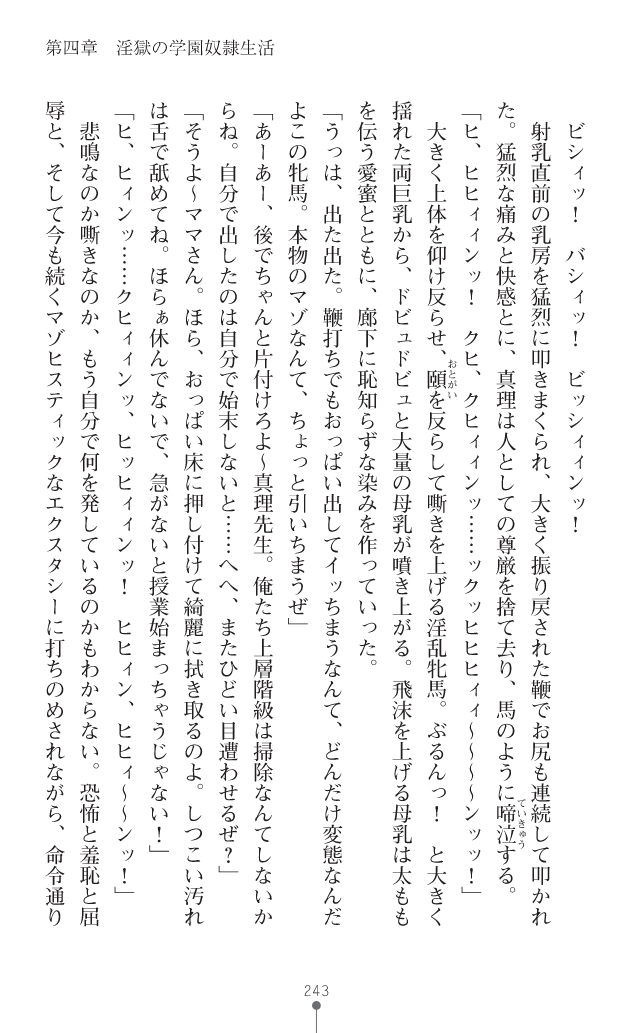 第四章　淫獄の学園奴隷生活
ビシィッ！　バシィッ！　ビッシィィンッ！
射乳直前の乳房を猛烈に叩きまくられ、大きく振り戻された鞭でお尻も連続して叩かれ
た。猛烈な痛みと快感とに、真理は人としての尊厳を捨て去り、馬のように啼泣する。
ていきゅう
「ヒ、ヒヒィィンッ！　クヒ、クヒィィンッ……ックッヒヒヒィィ～～～～ンッッ！」
大きく上体を仰け反らせ、頤を反らして嘶きを上げる淫乱牝馬。ぶるんっ！　と大きく
おとがい
揺れた両巨乳から、ドビュドビュと大量の母乳が噴き上がる。飛沫を上げる母乳は太もも
を伝う愛蜜とともに、廊下に恥知らずな染みを作っていった。
「うっは、出た出た。鞭打ちでもおっぱい出してイッちまうなんて、どんだけ変態なんだ
よこの牝馬。本物のマゾなんて、ちょっと引いちまうぜ」
「あーあー、後でちゃんと片付けろよ～真理先生。俺たち上層階級は掃除なんてしないか
らね。自分で出したのは自分で始末しないと……へへ、またひどい目遭わせるぜ？」
「そうよ～ママさん。ほら、おっぱい床に押し付けて綺麗に拭き取るのよ。しつこい汚れ
は舌で舐めてね。ほらぁ休んでないで、急がないと授業始まっちゃうじゃない！」
「ヒ、ヒィンッ……クヒィィンッ、ヒッヒィィンッ！　ヒヒィン、ヒヒィ～～ンッ！」
悲鳴なのか嘶きなのか、もう自分で何を発しているのかもわからない。恐怖と羞恥と屈
辱と、そして今も続くマゾヒスティックなエクスタシーに打ちのめされながら、命令通り
243